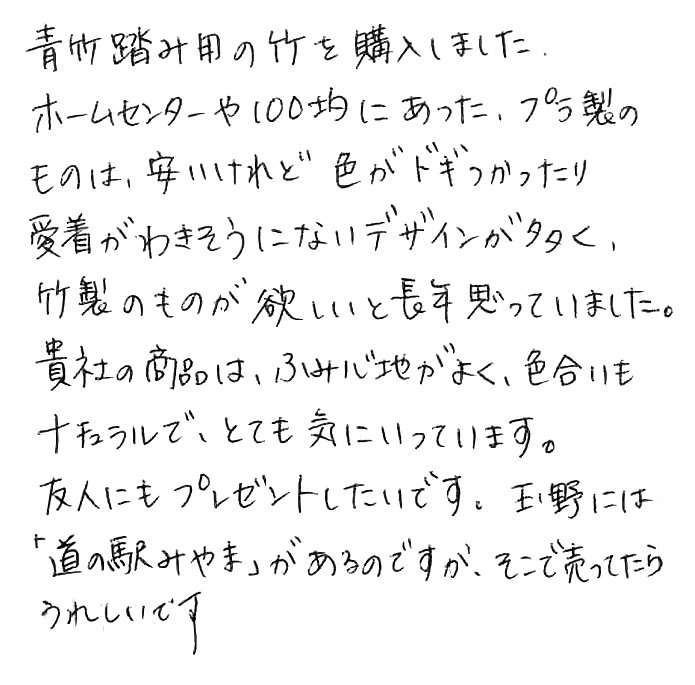 青竹踏み用の竹を購入しました.
ホームセンターや100均にあった、プラ製の
ものは、安いけれど色がドギつかったり
愛着がわきそうにないデザインが多く、
竹製のものが欲しいと長年思っていました。
貴社の商品は、ふみ心地がよく、色合いも
ナチュラルで、とても気にいっています。
友人にもプレゼントしたいです。玉野には
「道の駅みやま」があるのですが、そこで売ってたら
うれしいです